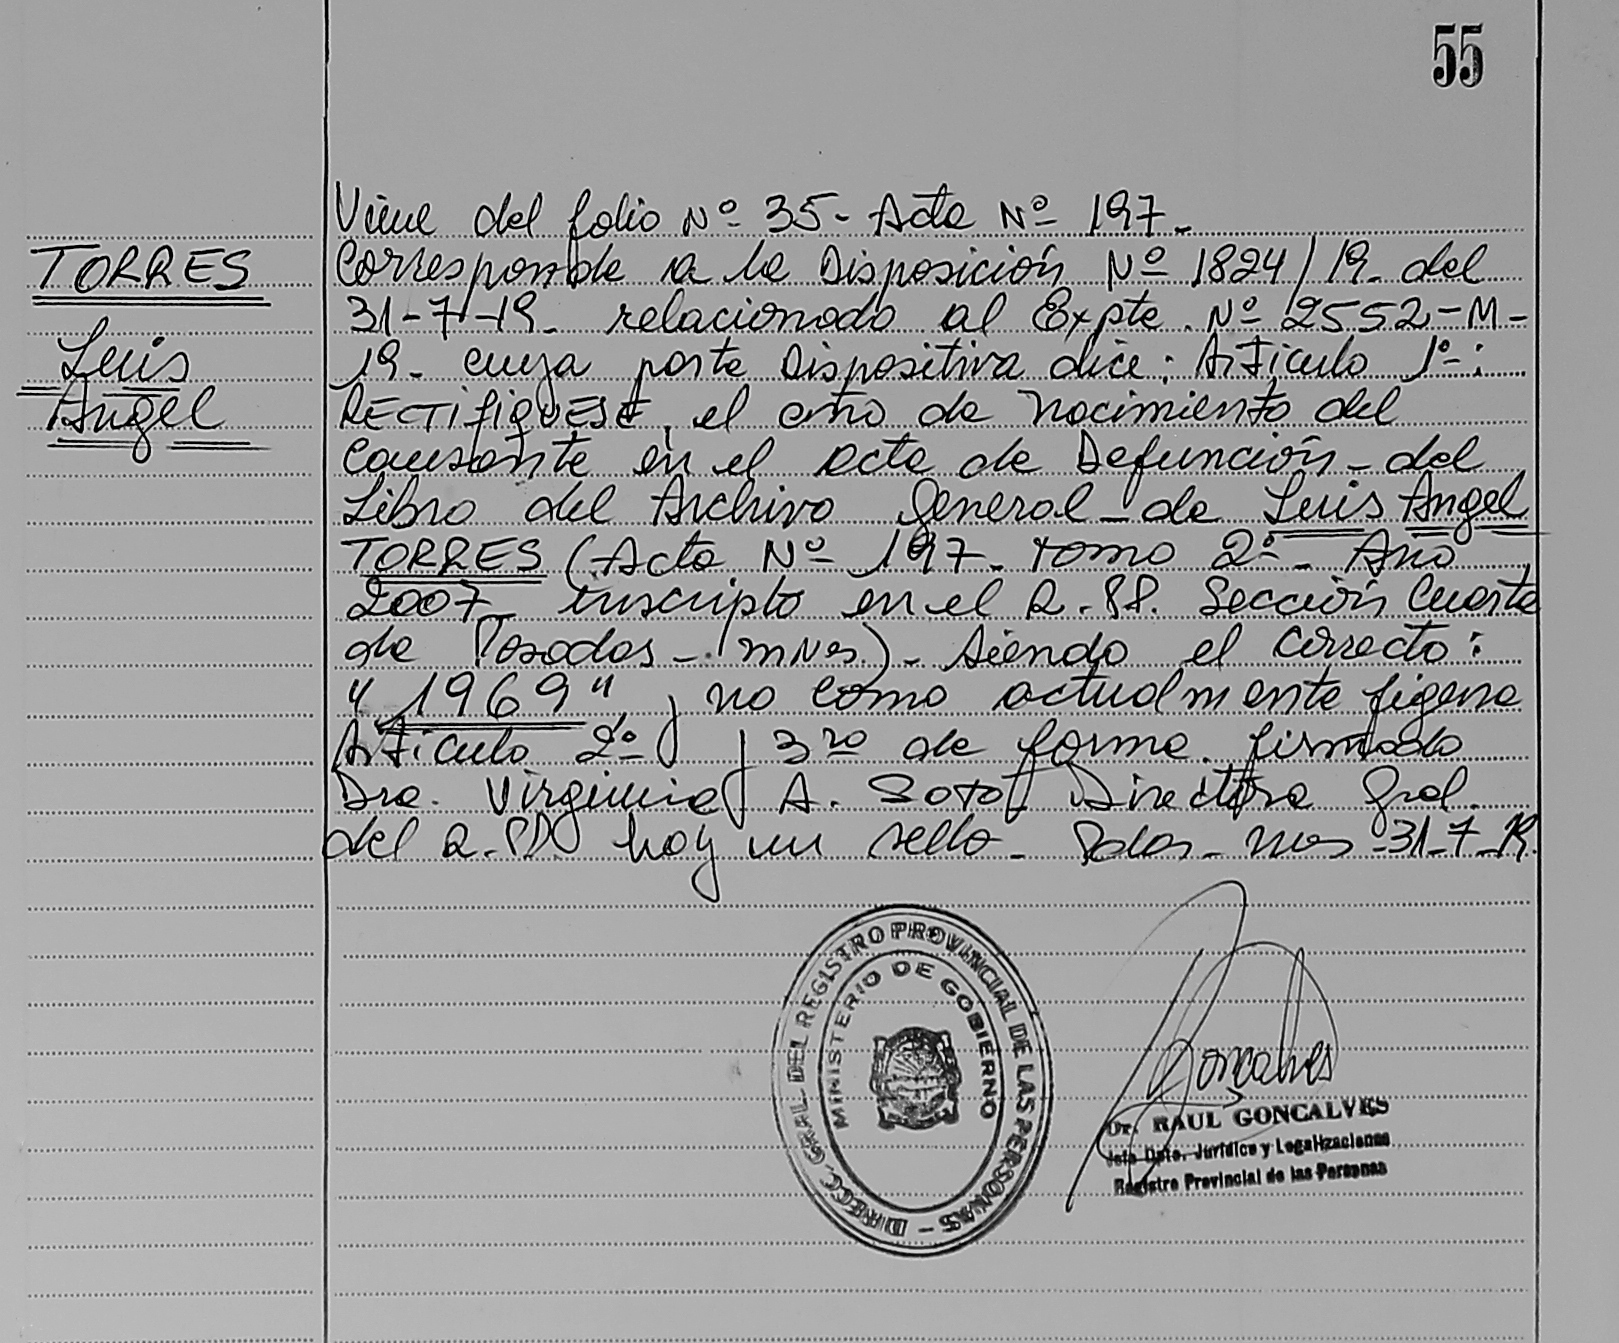 55
TORRES
Luis
Angel
Viene del folio Nº 35- Acta Nº 197.-
Corresponde a la Disposición Nº 1824/19- del
31-7-19- relacionado al Expte. Nº 2552-M-
19- cuya parte Dispositiva dice: Artículo 1º-:
RECTIfIQUESE, el año de nacimiento del
causante en el acta de Defunción- del
Libro del Archivo General- de Luis Angel
TORRES (Acta Nº 197- tomo 2º- Año
2007- inscripto en el R.PP. Sección Cuarta
de Posadas- (mnes)- siendo el correcto:
"1969", no como actualmente figera
Artículo 2º y 3ro de forma. firmado
Dra. Virginia A. Soto- Directora Gral.
del R.PP hay un sello- Pdas- mns-31-7-19.
DIRECC. GRAL. DEL REGISTRO PROVINCIAL DE LAS PERSONAS -
MINISTERIO DE GOBIERNO
Goncalves
Dr. RAUL GONCALVES
Jefe Dpto. Jurídico y Legalizaciones
Registro Provincial de las Personas